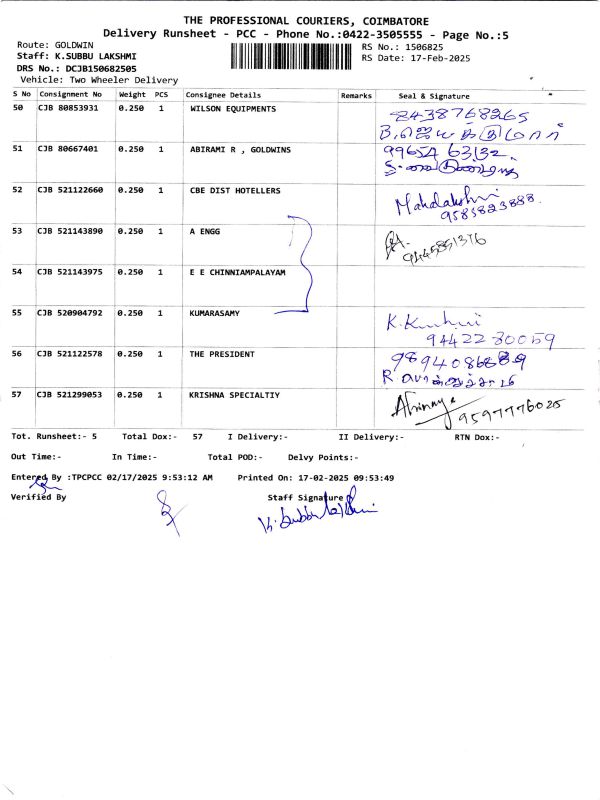 THE PROFESSIONAL COURIERS, COIMBATORE
Delivery Runsheet - PCC - Phone No.:0422-3505555 - Page No.:5
Route: GOLDWIN
RS No.: 1506825
Staff: K.SUBBU LAKSHMI
RS Date: 17-Feb-2025
DRS No.: DCJB150682505
Vehicle: Two Wheeler Delivery
S No Consignment No Weight PCS Consignee Details Remarks Seal & Signature
50 CJB 80853931 0.250 1 WILSON EQUIPMENTS 8438768265
51 CJB 80667401 0.250 1 ABIRAMI R , GOLDWINS 99654 63132.
52 CJB 521122660 0.250 1 CBE DIST HOTELLERS Mahalakshmi
9585823888.
53 CJB 521143890 0.250 1 A ENGG 9445851376
54 CJB 521143975 0.250 1 E E CHINNIAMPALAYAM
55 CJB 520904792 0.250 1 KUMARASAMY K.
94422 30059
56 CJB 521122578 0.250 1 THE PRESIDENT
57 CJB 521299053 0.250 1 KRISHNA SPECIALTIY Abinaya 9597776025
Tot. Runsheet:- 5 Total Dox:- 57 I Delivery:- II Delivery:- RTN Dox:-
Out Time:- In Time:- Total POD:- Delvy Points:-
Entered By :TPCPCC 02/17/2025 9:53:12 AM Printed On: 17-02-2025 09:53:49
Verified By Staff Signature
K. Subbu lakshmi